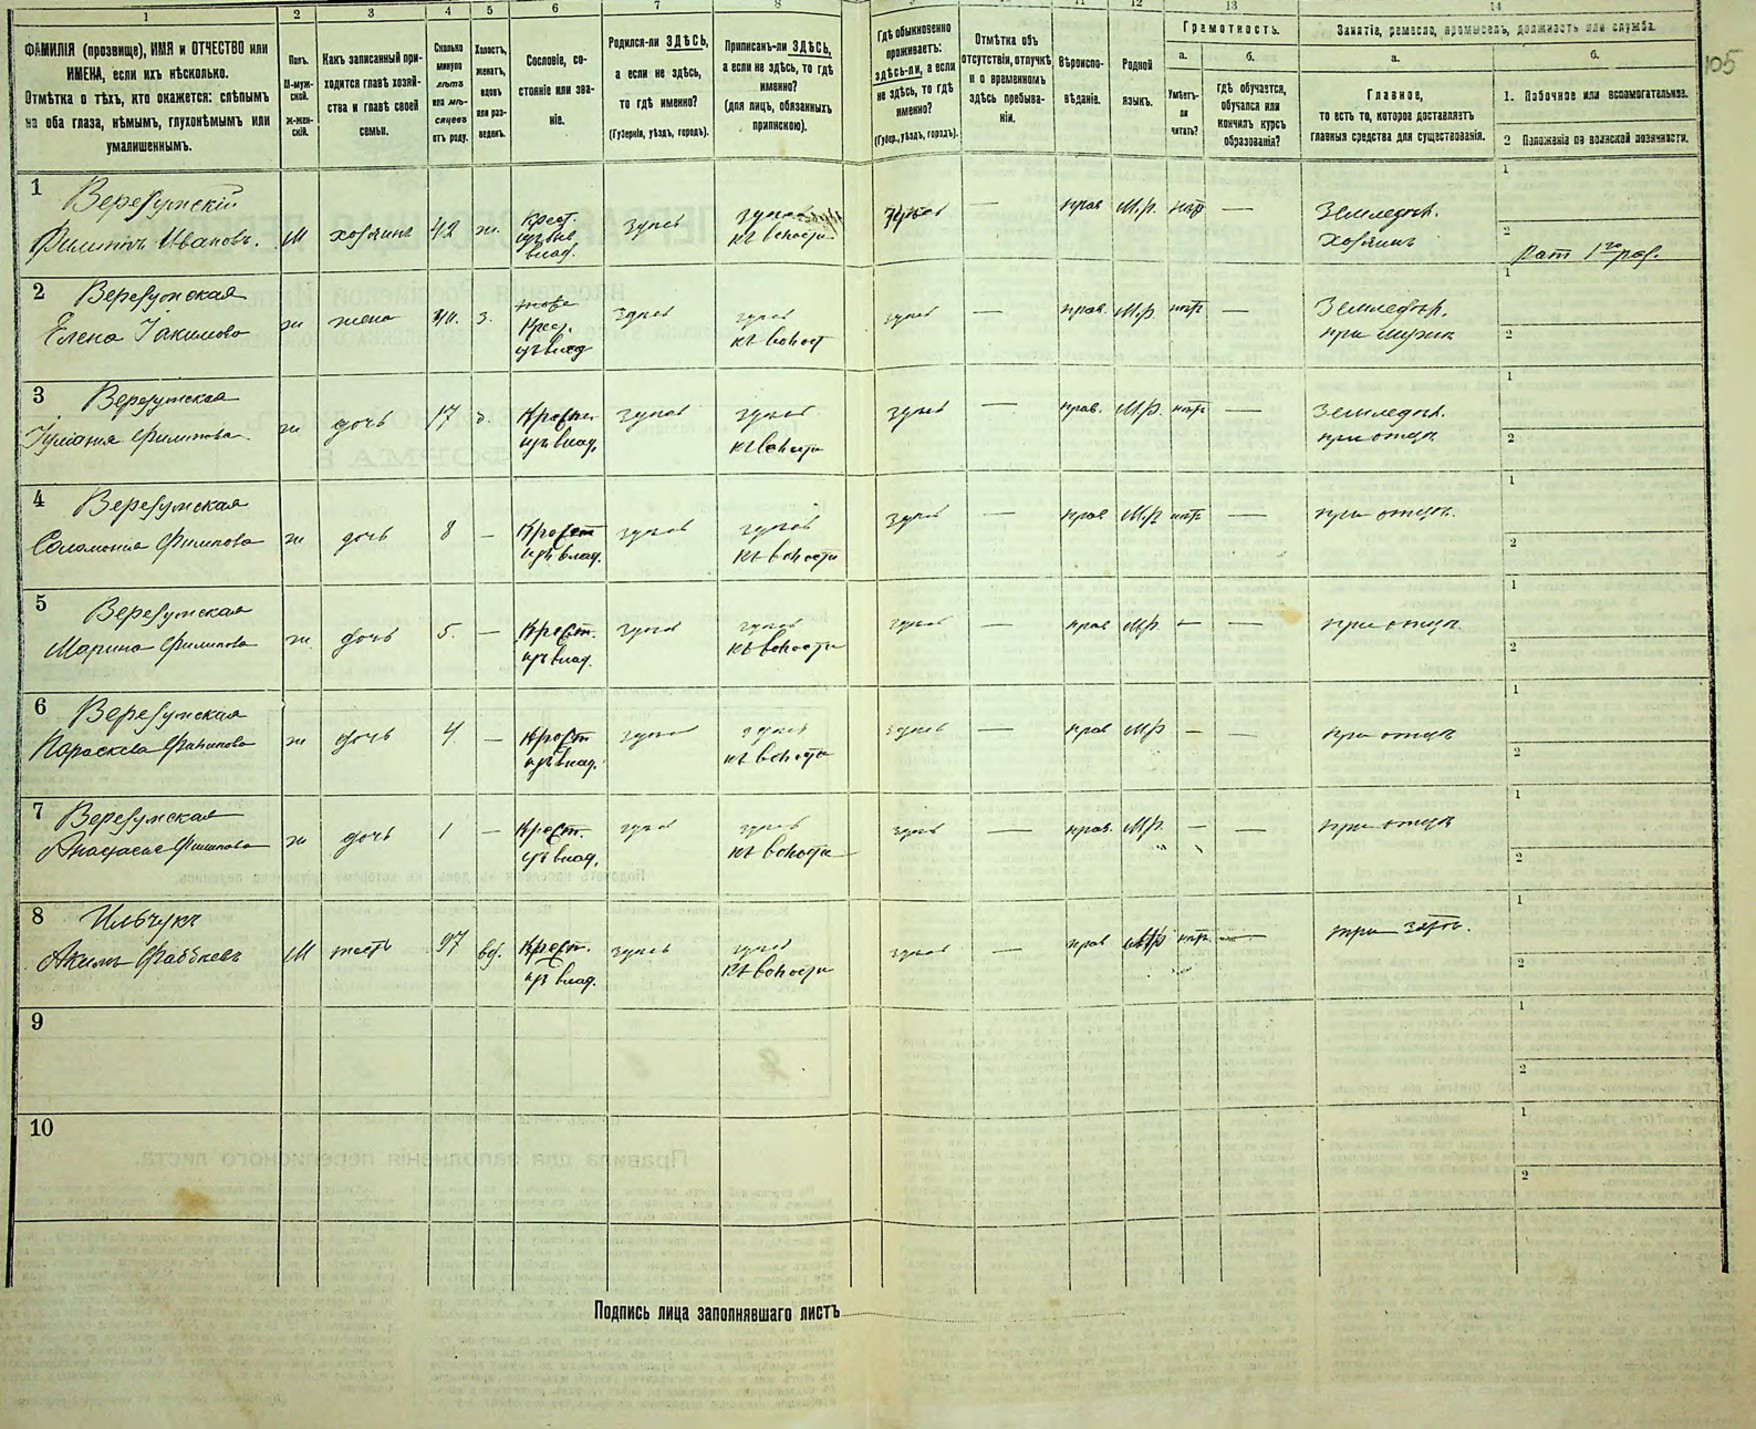 1 2 3 4 5 6 7 8 9 12 13 14
ФАМИЛІЯ (прозвище), ИМЯ и ОТЧЕСТВО или ИМЕНА, если ихъ нѣсколько.
Отмѣтка о тѣхъ, кто окажется: слѣпымъ на оба глаза, нѣмымъ, глухонѣмымъ или умалишеннымъ.
Полъ. М-мужской. Ж-женскій.
Какъ записанный приходится главѣ хозяйства и главѣ своей семьи.
Сколько минуло лѣтъ или мѣсяцевъ отъ роду.
Холостъ, женатъ, вдовъ или разведенъ.
Сословіе, состояніе или званіе.
Родился-ли ЗДѢСЬ, а если не здѣсь, то гдѣ именно?
(Губернія, уѣздъ, городъ).
Приписанъ-ли ЗДѢСЬ, а если не здѣсь, то гдѣ именно?
(для лицъ, обязанныхъ припискою).
Гдѣ обыкновенно проживаетъ: здѣсь-ли, а если не здѣсь, то гдѣ именно?
(Губер., уѣздъ, городъ).
Отмѣтка объ отсутствіи, отлучкѣ и о временномъ здѣсь пребываніи.
Вѣроисповѣданіе.
Родной языкъ.
Грамотность.
а.
Умѣетъ-ли читать?
б.
гдѣ обучается, обучался или кончилъ курсъ образованія?
Занятіе, ремесло, промыселъ, должность или служба.
а.
Главное,
то есть то, которое доставляетъ главныя средства для существованія.
б.
1. Побочное или вспомогательное.
2 Положеніе по воинской повинности.
105
1 Верезумскій
Филипъ Ивановъ. М хозяинъ 42 ж. Крест. изъ влад. здѣсь здѣсь къ волости здѣсь — прав М.р. нѣтъ — Земледѣл. Хозяинъ 1
2 Рат 1го раз.
2 Верезумская
Елена Іакимова ж жена з. Крес. изъ влад здѣсь здѣсь къ волост здѣсь — прав. М.р. нѣтъ — Земледѣл. при мужѣ 1
2
3 Верезумская
Іуліанія Филипова. ж дочь 17 д. Крест. изъ влад. здѣсь здѣсь къ волости здѣсь — прав. М.р. нѣтъ — Земледѣл. при отцѣ 1
2
4 Верезумская
Соломонія Филипова ж дочь 8 — Крест изъ влад. здѣсь здѣсь къ волости здѣсь — прав М.р нѣтъ — при отцѣ. 1
2
5 Верезумская
Марина Филипова ж. дочь 5. — Крест. изъ влад. здѣсь здѣсь къ волости здѣсь — прав М.р. — — при отцѣ. 1
2
6 Верезумская
Параскева Филипова ж дочь 4. — Крест изъ влад. здѣсь здѣсь къ волости здѣсь — прав М.р — — при отцѣ 1
2
7 Верезумская
Анастасія Филипова ж дочь 1 — Крест. изъ влад. здѣсь здѣсь къ волости здѣсь — прав. М.р. — — при отцѣ 1
2
8 Ильчукъ
Акимъ М тесть 97 вд. Крест. изъ влад. здѣсь здѣсь къ волости здѣсь — прав М.р нѣтъ — при зятѣ. 1
2
9 1
2
10 1
2
Подпись лица заполнявшаго листъ